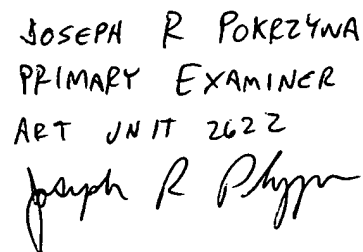 JOSEPH R POKRZYWA
PRIMARY EXAMINER
ART UNIT 2622
Joseph R